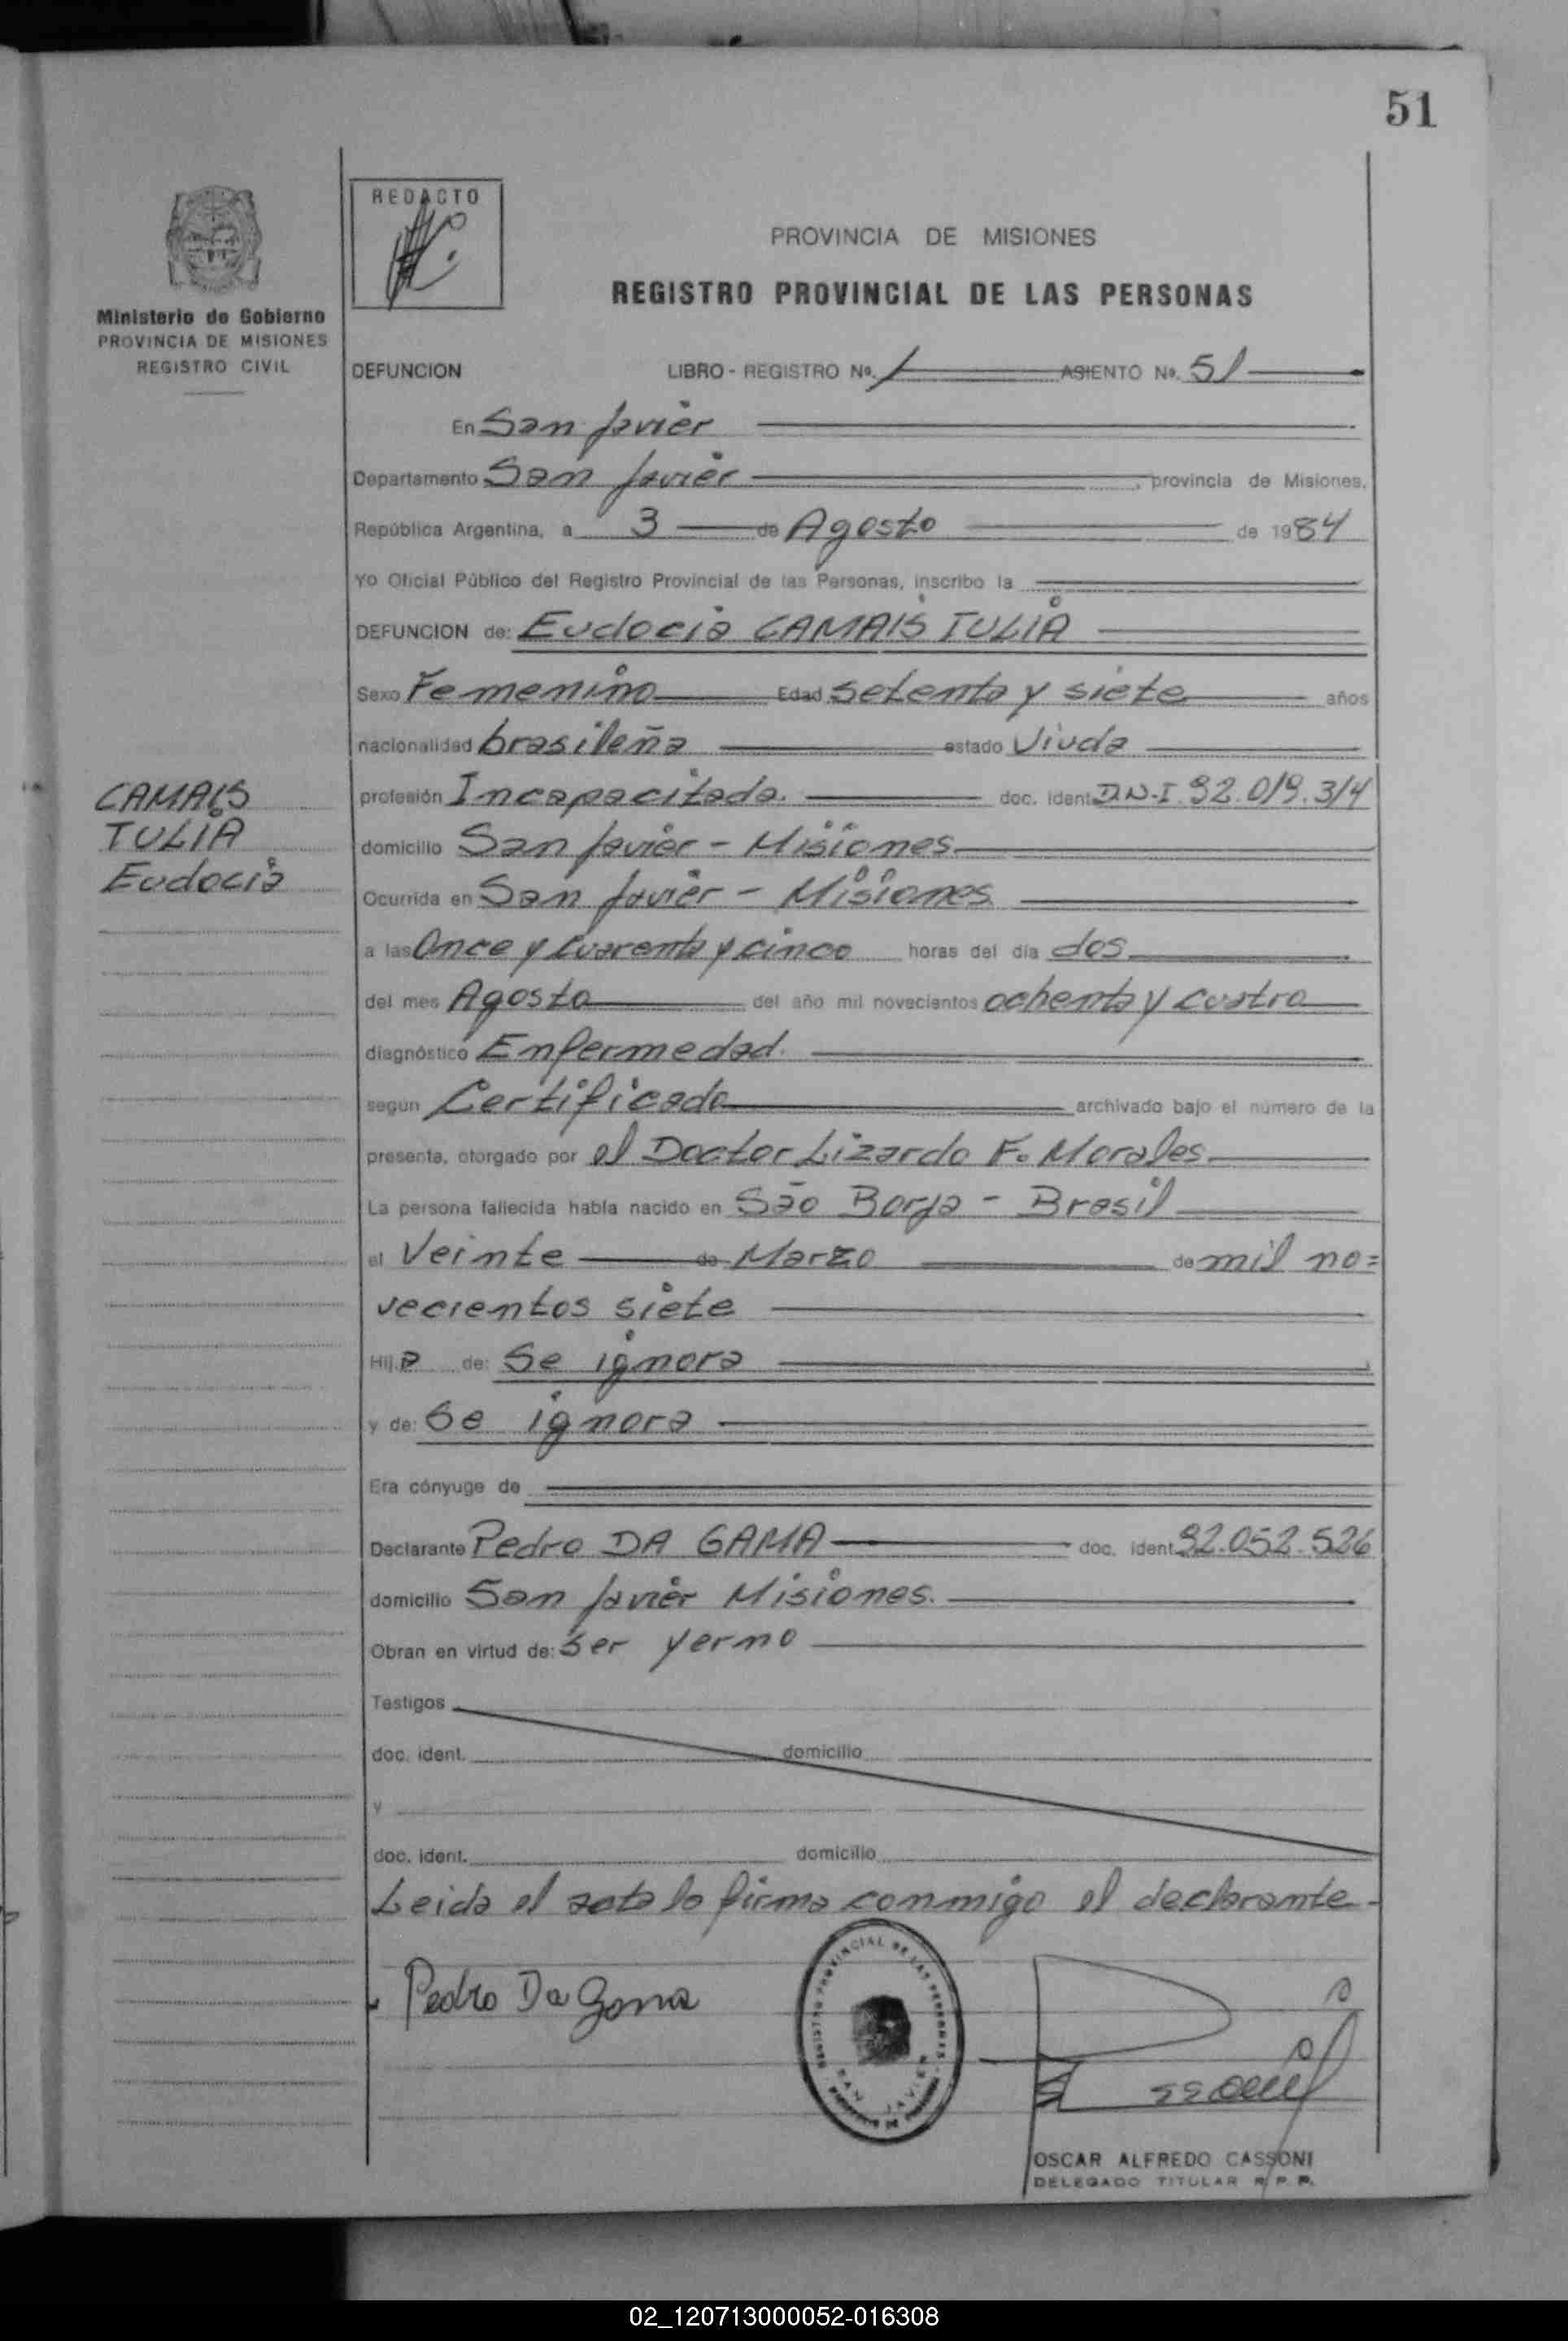 51
REDACTO
PROVINCIA DE MISIONES
REGISTRO PROVINCIAL DE LAS PERSONAS
Ministerio de Gobierno
PROVINCIA DE MISIONES
REGISTRO CIVIL
DEFUNCION LIBRO - REGISTRO No. 1 ASIENTO No. 51
En San Javier
Departamento San Javier, provincia de Misiones,
República Argentina, a 3 de Agosto de 1984
Yo Oficial Público del Registro Provincial de las Personas, inscribo la
DEFUNCION de: Eudocia CAMAIS TULIA
Sexo Femenino Edad setenta y siete años
nacionalidad brasileña estado Viuda
CAMAIS
TULIA
Eudocia
profesión Incapacitada. doc. ident D.N.I. 92.019.314
domicilio San Javier - Misiones.
Ocurrida en San Javier - Misiones
a las Once y cuarenta y cinco horas del día dos
del mes Agosto del año mil novecientos ochenta y cuatro
diagnóstico Enfermedad.
según Certificado archivado bajo el número de la
presente, otorgado por el Doctor Lizardo F. Morales.
La persona fallecida había nacido en São Borja - Brasil
el Veinte de Marzo de mil no=
vecientos siete
Hija de: Se ignora
y de: Se ignora
Era cónyuge de
Declarante Pedro DA GAMA doc. ident. 92.052.526
domicilio San Javier Misiones.
Obran en virtud de: Ser yerno
Testigos
doc. ident. domicilio
y
doc. ident. domicilio
Leida el acta la firma conmigo el declarante.
Pedro Da Gama
REGISTRO PROVINCIAL DE LAS PERSONAS
SAN JAVIER
OSCAR ALFREDO CASSONI
DELEGADO TITULAR R.P.P.
02_120713000052-016308